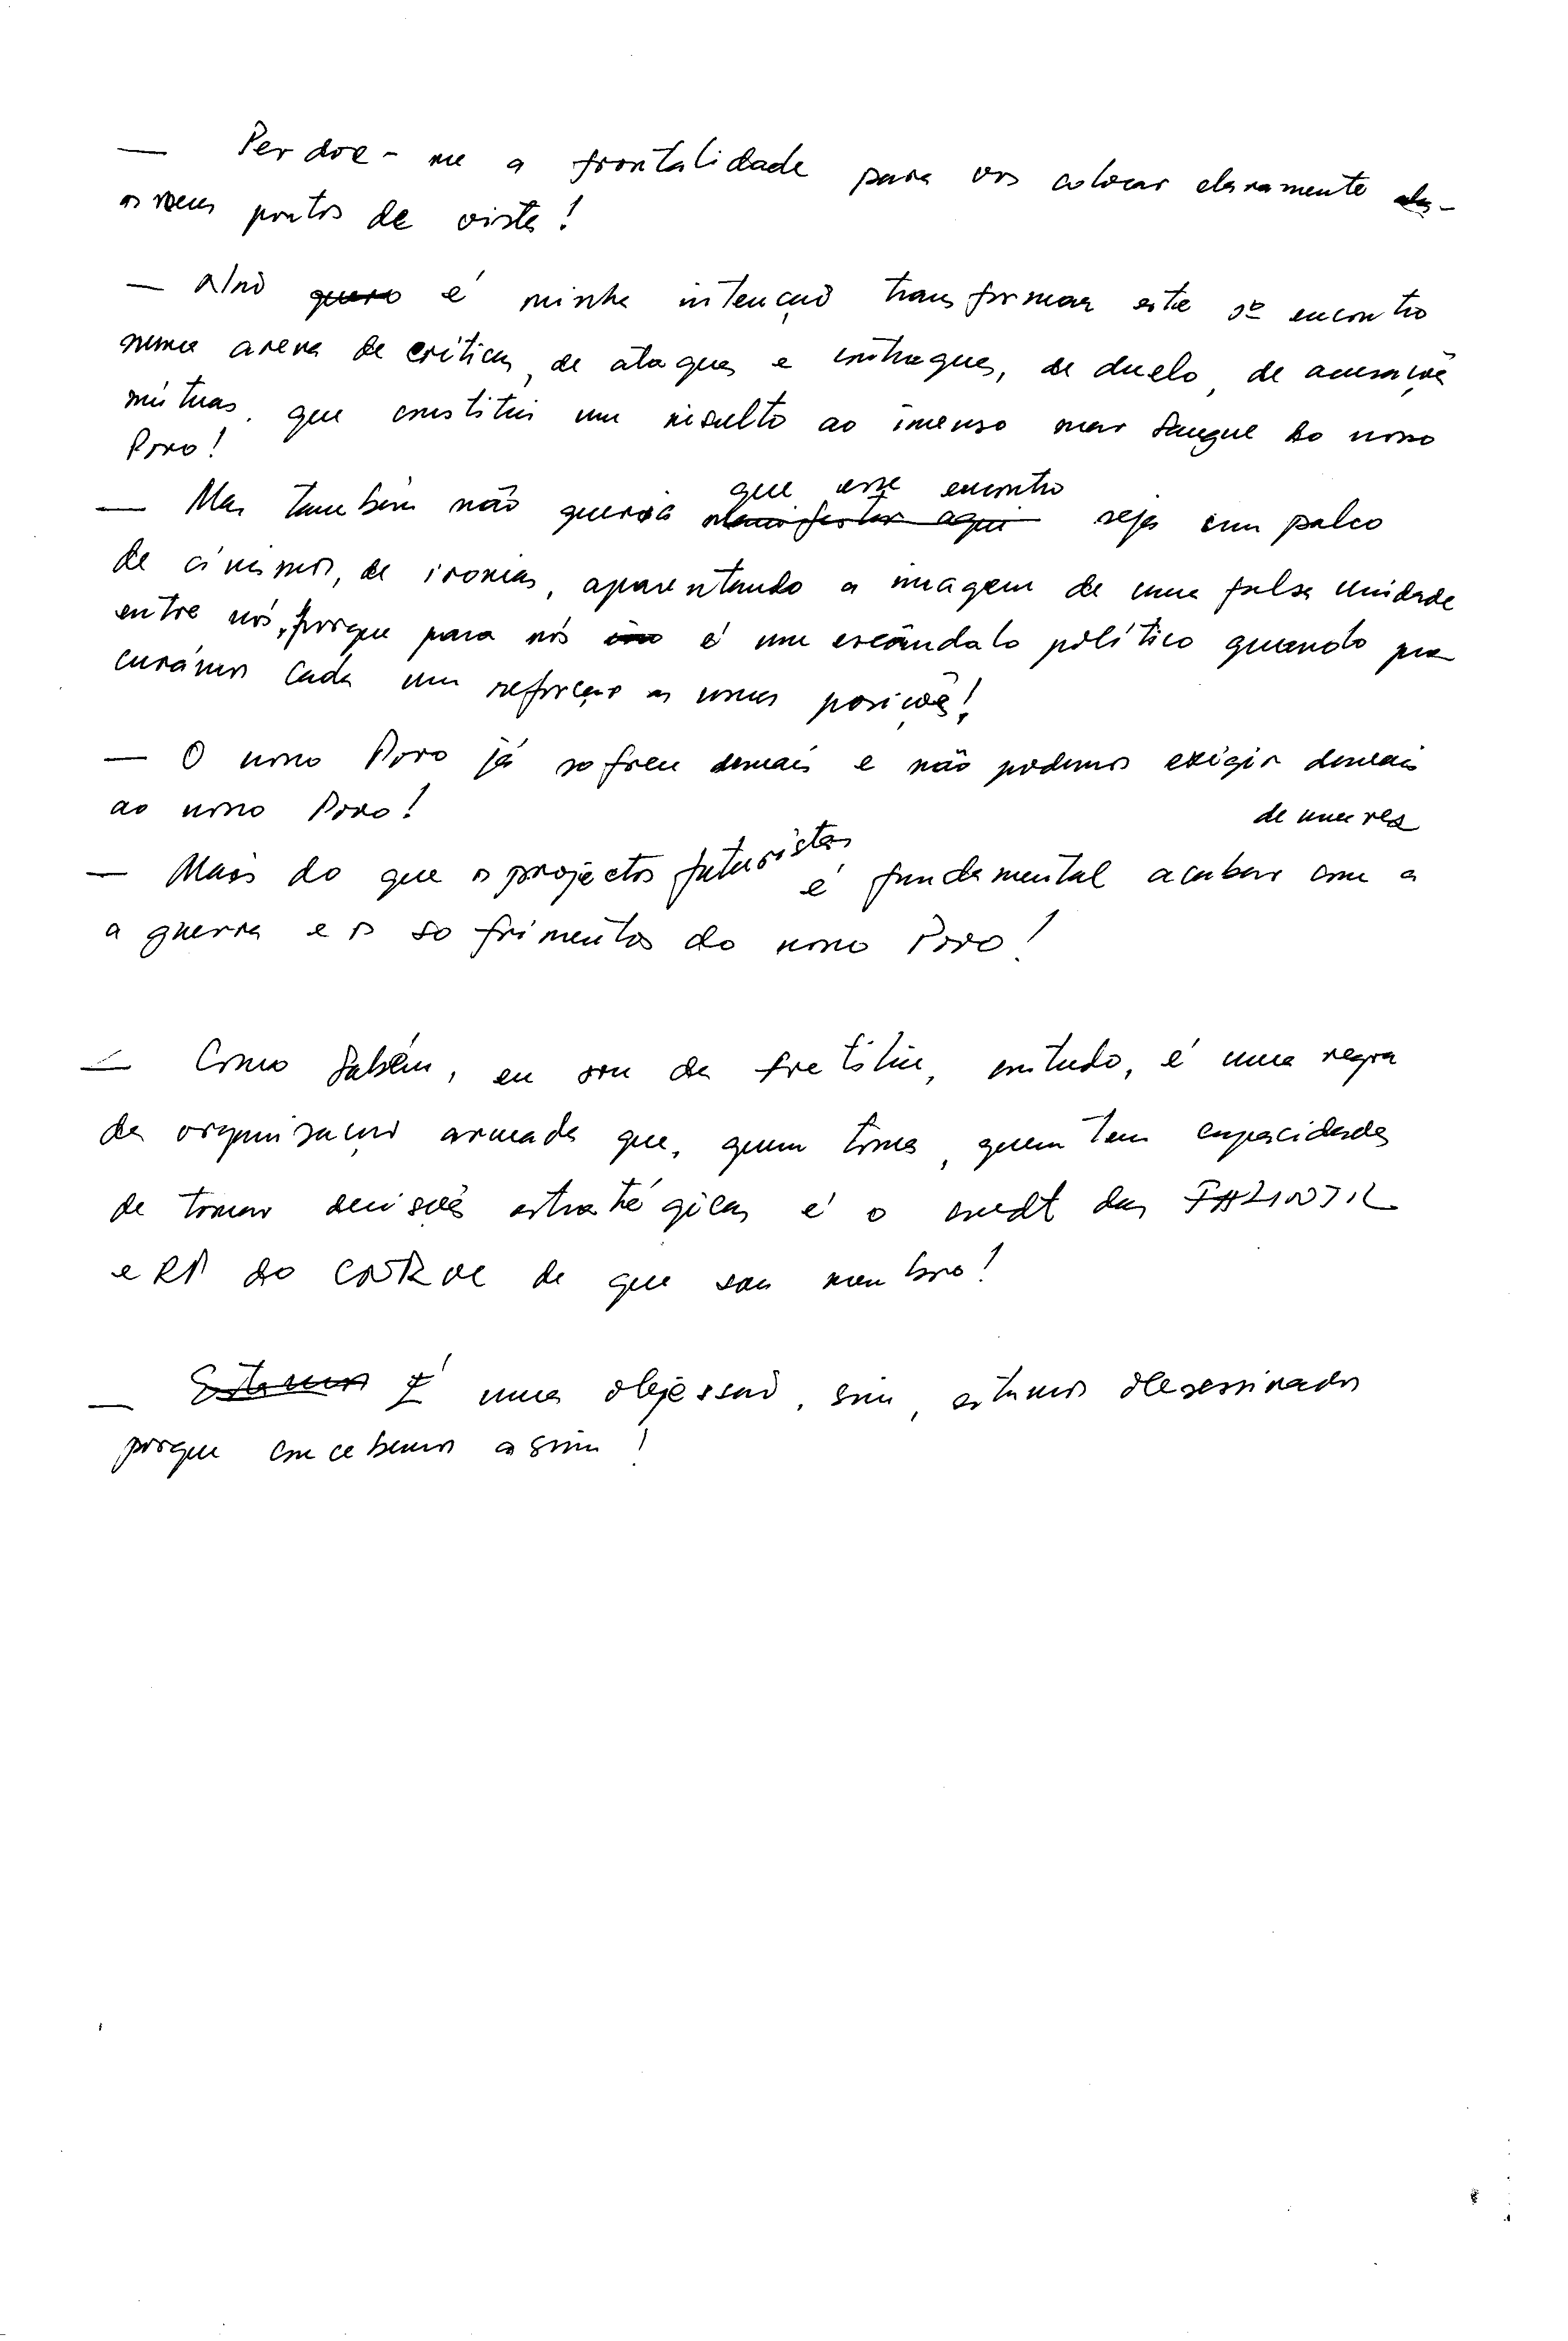 — Perdoe-me a frontalidade para vos colocar claramente
os meus pontos de vista!
— Não quero é minha intenção transformar este 1º encontro
numa arena de críticas, de ataques e contraques, de duelo, de acusações
mútuas, que constitui um insulto ao imenso mar sangue do nosso
Povo!
que esse encontro
— Mas também não queria manifestar aqui seja um palco
de cinismos, de ironias, aparentando a imagem de uma falsa unidade
entre nós, porque para nós é um escândalo político quando pro
curámos cada um reforçar as nossas posições!
— O nosso Povo já sofreu demais e não podemos exigir demais
ao nosso Povo!
de uma vez
— Mais do que os projectos futuristas é fundamental acabar com a
a guerra e os sofrimentos do nosso Povo!
— Como sabem, eu sou da fretilin, contudo, é uma regra
da organização armada que, quem toma, quem tem capacidades
de tomar decisões estratégicas é o cmdt das FALINTIL
e RP do CNRM de que sou membro!
— Estamos É uma objessão, sim, estamos obsessinados
porque concebemos assim!